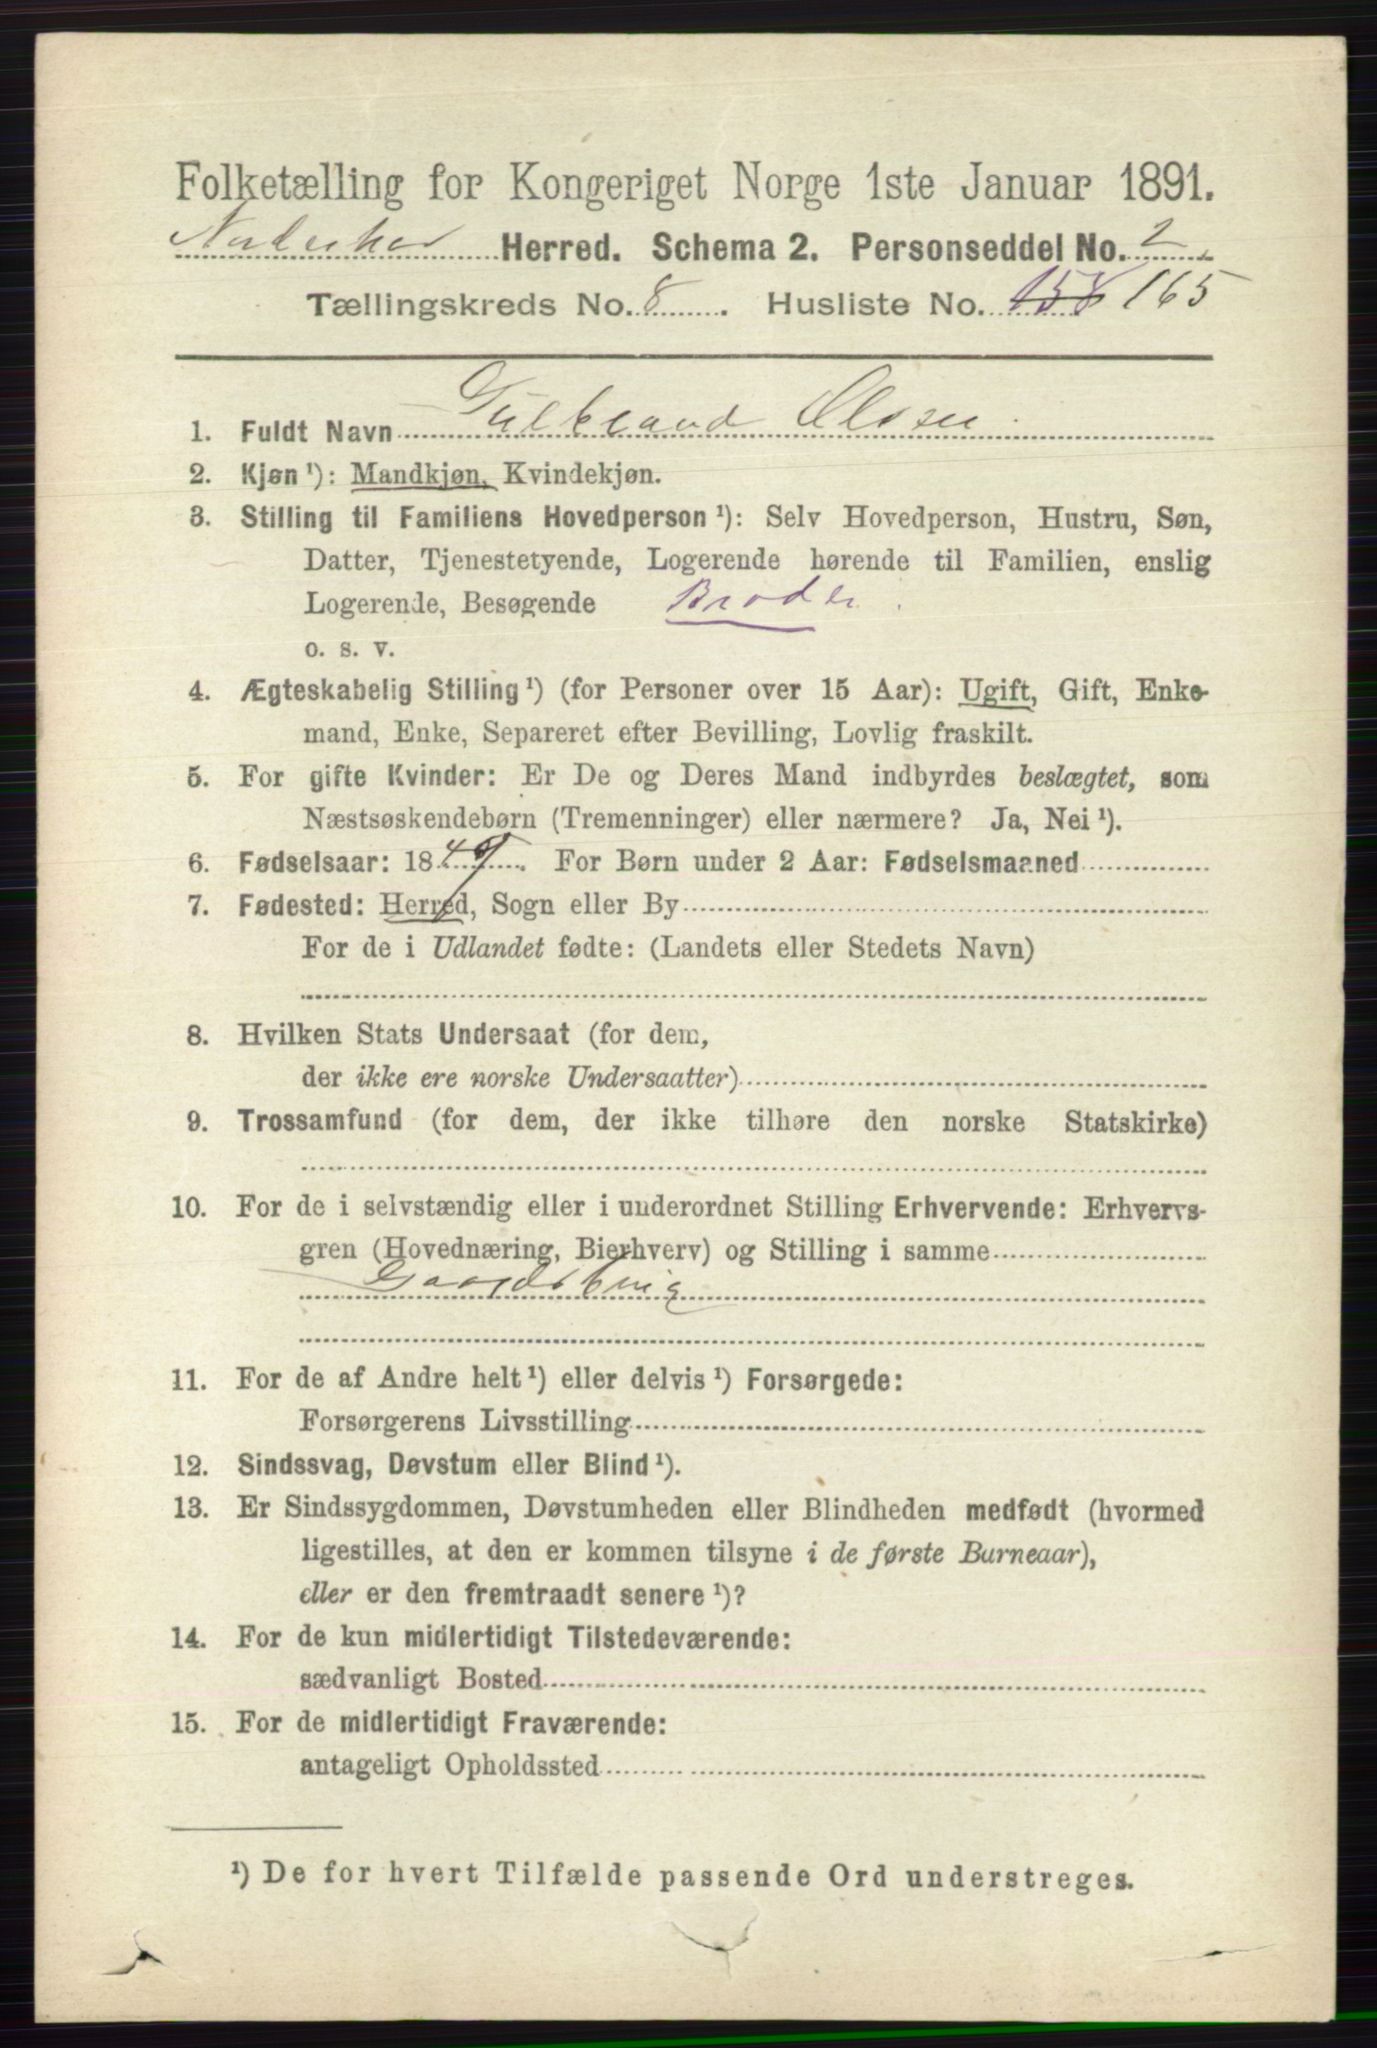 Folketælling for Kongeriget Norge 1ste Januar 1891.
Norderhov Herred. Schema 2. Personseddel No. 2
Tællingskreds No. 8. Husliste No. 158 165
1. Fuldt Navn Gulbrand Olsen
2. Kjøn ¹): Mandkjøn, Kvindekjøn.
3. Stilling til Familiens Hovedperson ¹): Selv Hovedperson, Hustru, Søn,
Datter, Tjenestetyende, Logerende hørende til Familien, enslig
Logerende, Besøgende Broder.
o. s. v.
4. Ægteskabelig Stilling ¹) (for Personer over 15 Aar): Ugift, Gift, Enke-
mand, Enke, Separeret efter Bevilling, Lovlig fraskilt.
5. For gifte Kvinder: Er De og Deres Mand indbyrdes beslægtet, som
Næstsøskendebørn (Tremenninger) eller nærmere? Ja, Nei ¹).
6. Fødselsaar: 1849. For Børn under 2 Aar: Fødselsmaaned
7. Fødested: Herred, Sogn eller By
For de i Udlandet fødte: (Landets eller Stedets Navn)
8. Hvilken Stats Undersaat (for dem,
der ikke ere norske Undersaatter)
9. Trossamfund (for dem, der ikke tilhøre den norske Statskirke)
10. For de i selvstændig eller i underordnet Stilling Erhvervende: Erhvervs-
gren (Hovednæring, Bierhverv) og Stilling i samme
Gaardsbrug
11. For de af Andre helt ¹) eller delvis ¹) Forsørgede:
Forsørgerens Livsstilling
12. Sindssvag, Døvstum eller Blind ¹).
13. Er Sindssygdommen, Døvstumheden eller Blindheden medfødt (hvormed
ligestilles, at den er kommen tilsyne i de første Barneaar),
eller er den fremtraadt senere ¹)?
14. For de kun midlertidigt Tilstedeværende:
sædvanligt Bosted
15. For de midlertidigt Fraværende:
antageligt Opholdssted
¹) De for hvert Tilfælde passende Ord understreges.